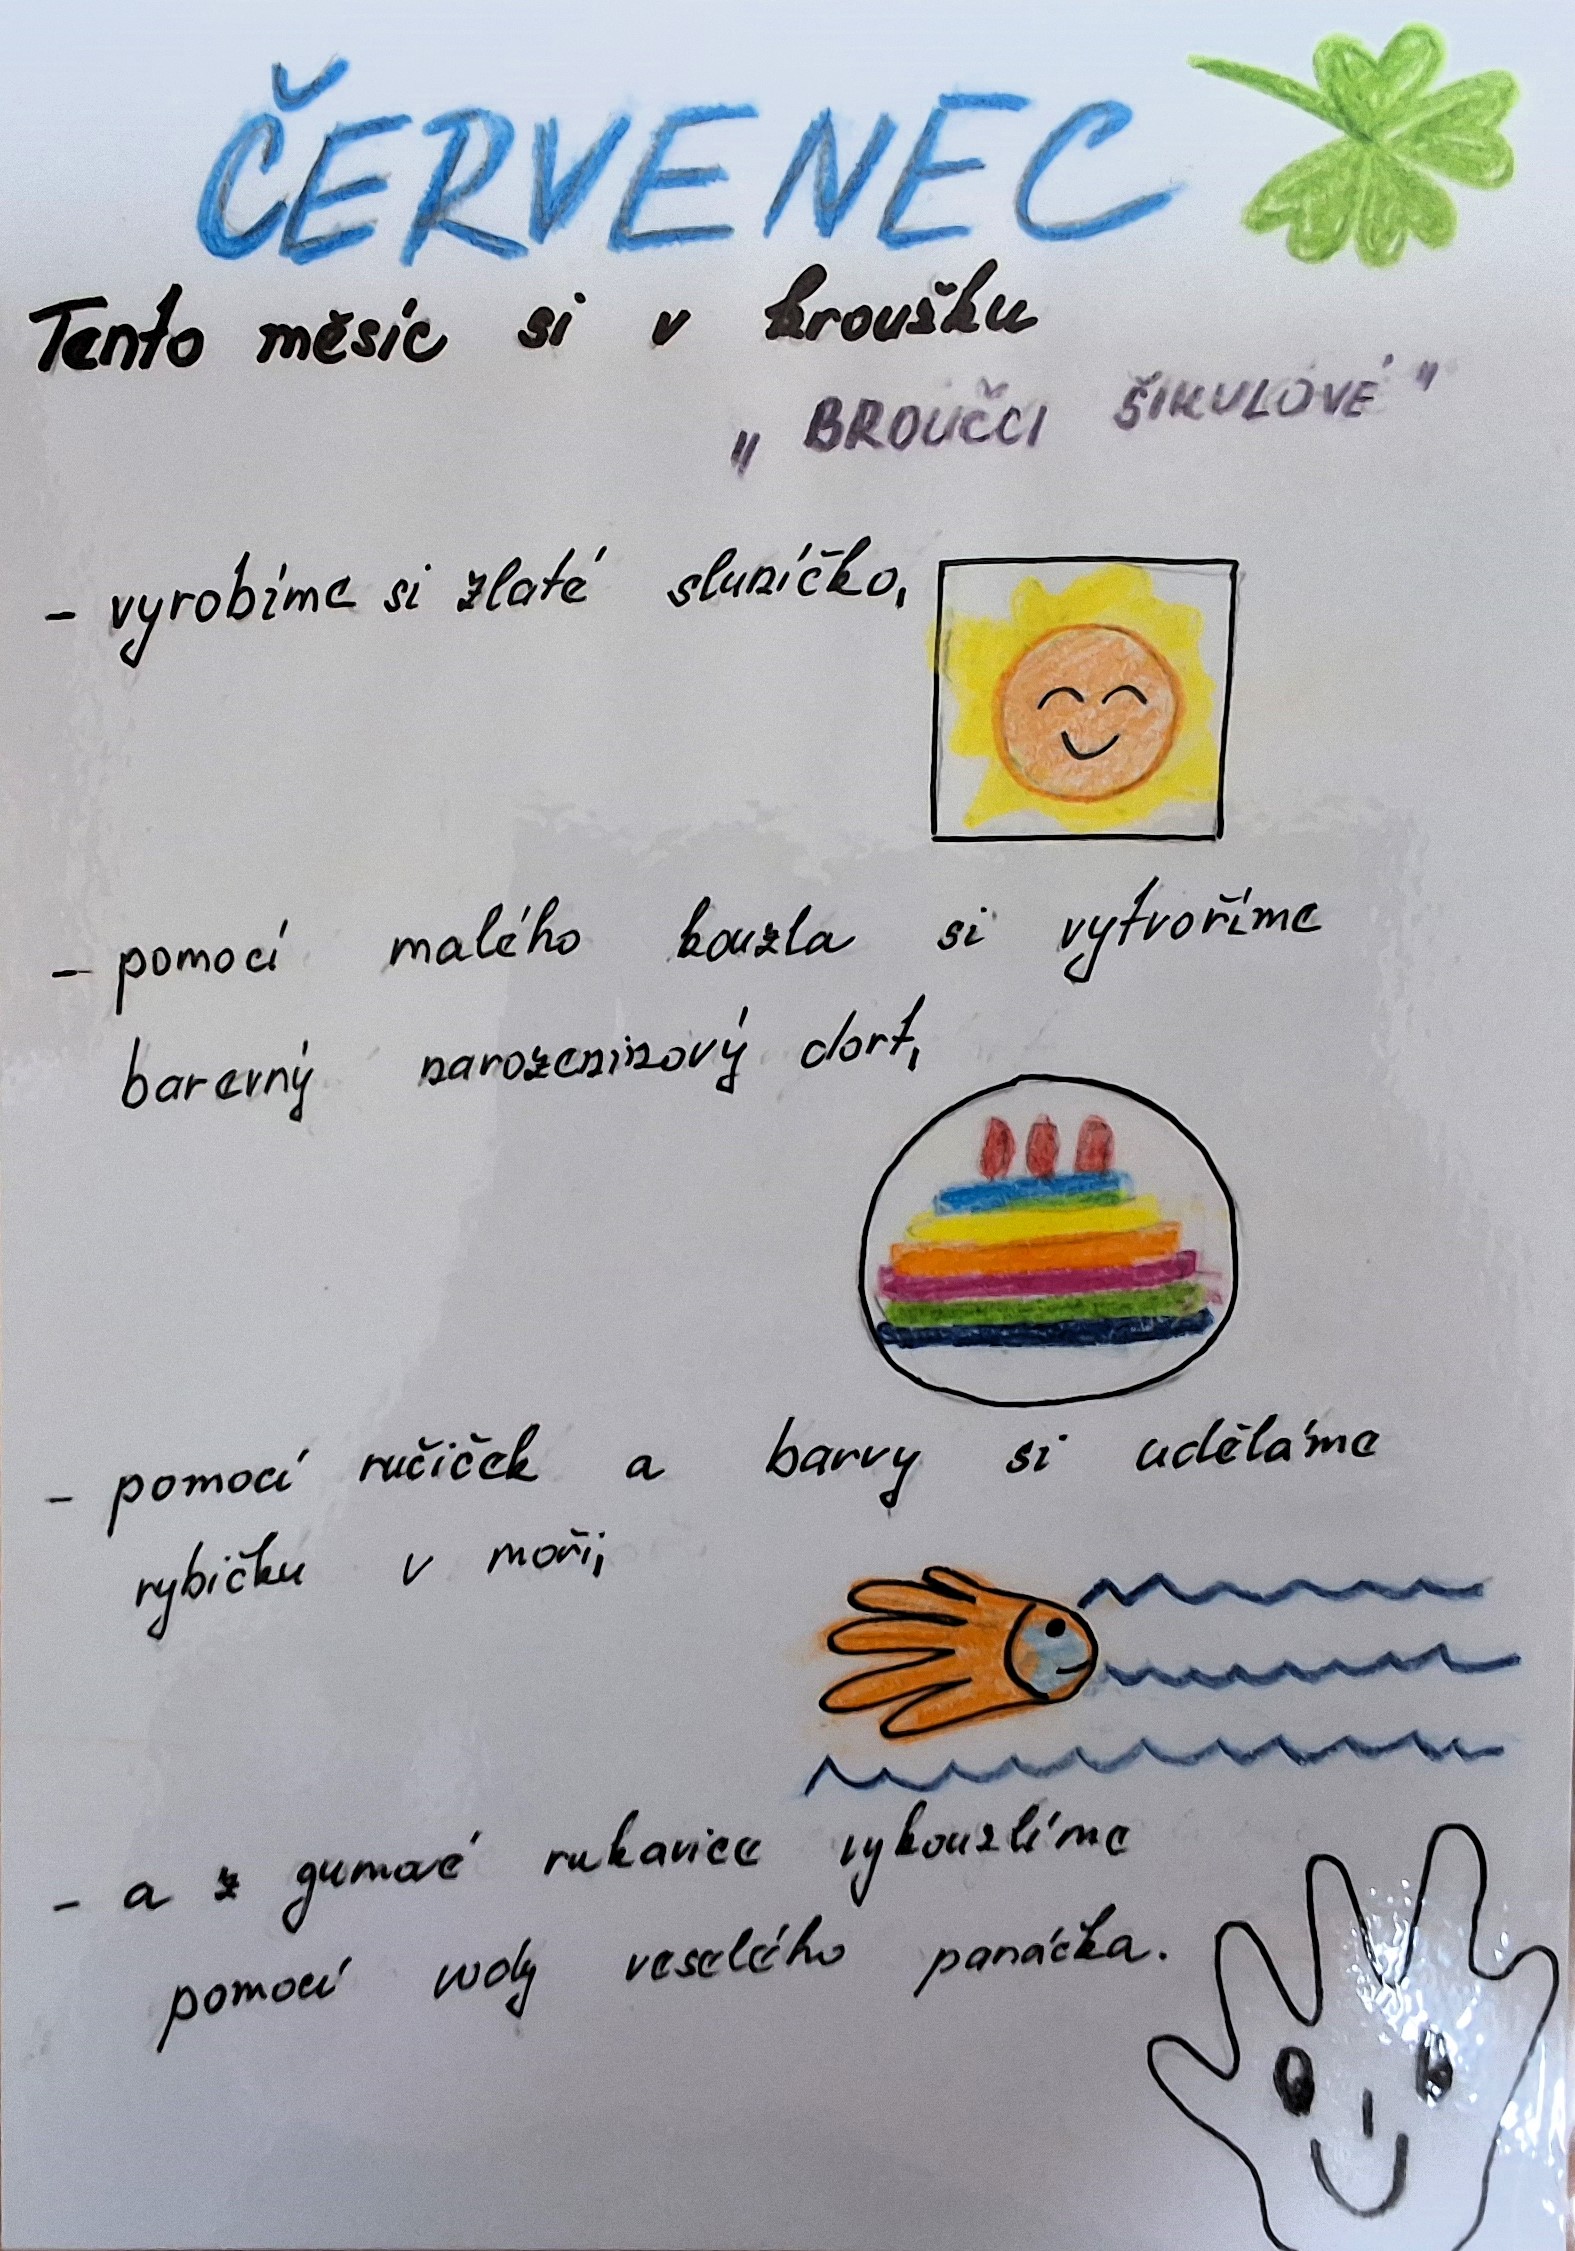 ČERVENEC
Tento měsíc si v kroušku
„ BROUČCI ŠIKULOVÉ "
- vyrobíme si zlaté sluníčko,
- pomocí malého kouzla si vytvoříme
barevný narozeninový dort,
- pomocí ručiček a barvy si uděláme
rybičku v moři,
- a z gumové rukavice vykouzlíme
pomocí vody veselého panáčka.